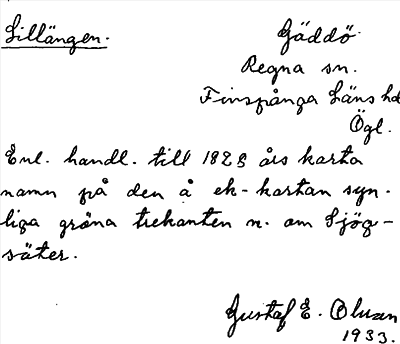 Lillängen.
Gäddö
Regna sn.
Finspånga läns hd
Ögl.
Enl. handl. till 1828 års karta
namn på den å ek-kartan syn-
liga gröna trekanten n. om Sjög-
säter.
Gustaf E. Olsson
1933.